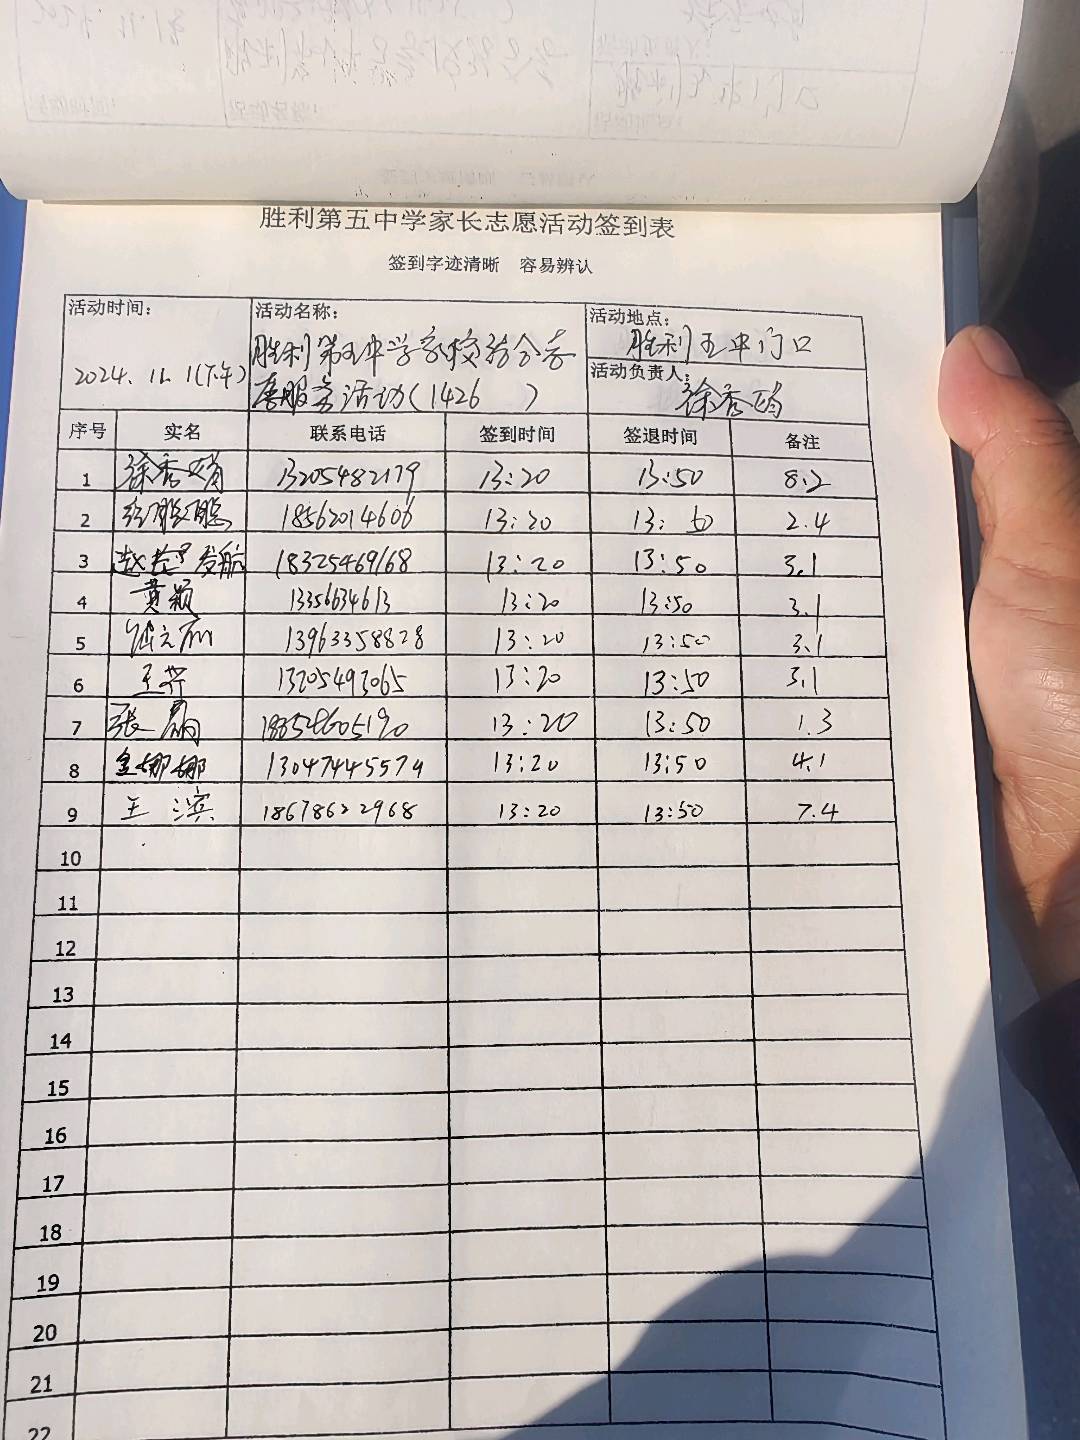 胜利第五中学家长志愿活动签到表
签到字迹清晰 容易辨认
活动时间: 2024.11.1(下午)
活动名称: 胜利第五中学家校结合志愿服务活动(1426 )
活动地点: 胜利五中门口
活动负责人: 徐秀娟
序号 实名 联系电话 签到时间 签退时间 备注
1 徐秀娟 13205482179 13:20 13:50 8.2
2 18562014606 13:20 13:50 2.4
3 18325469168 13:20 13:50 3.1
4 黄颖 1335634613 13:20 13:50 3.1
5 13963358828 13:20 13:50 3.1
6 王芹 13205493065 13:20 13:50 3.1
7 张 13:20 13:50 1.3
8 金娜娜 13047445579 13:20 13:50 4.1
9 王滨 18678622968 13:20 13:50 7.4
10
11
12
13
14
15
16
17
18
19
20
21
22